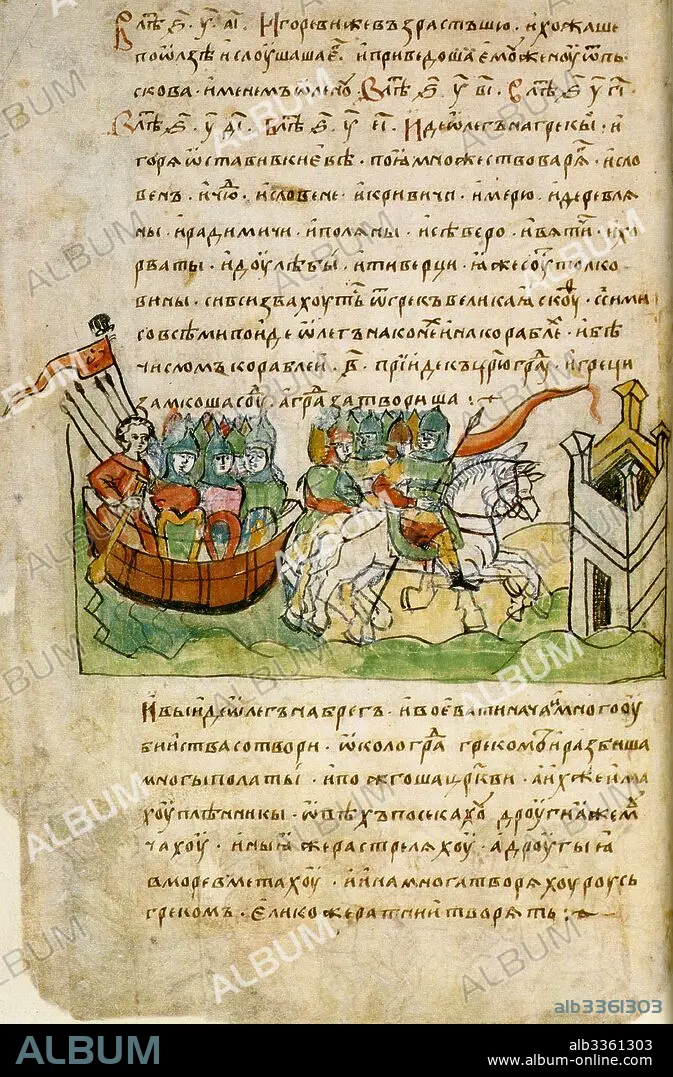 В лѣт҃ ҂ѕ҃ у҃ аі҃ · Игореви же възрастъшю · и хожаше
по ѡлзѣ и слоушаша ег҃ · и приведоша емоу женоу ѿ пь
скова · именемъ ѡленоу В лѣт҃ ҂ѕ҃ у҃ ві҃ · В лѣт҃ ҂ѕ҃ у҃ гі҃
В лѣт҃ ҂ѕ҃ у҃ ді҃ · В лѣт҃ ҂ѕ҃ у҃ еі҃ · Иде ѡлегъ на грекы · и
горя ѡставив киевѣ · поꙗ множество варѧ · и сло
венъ · и чю · и словене · и кривичи · и мерю · и деревлѧ
ны · и радимичи · и полѧны · и сѣверо · и вѧтичи · и хо
рваты · и доулѣбы · и тиверци · ꙗже соуть толко
вины · си вси звахоуть ѿ грекъ великаꙗ скоуѳь · с сими
со всѣми поиде ѡлегъ на конех и на кораблех · и бѣ
числомъ кораблеи · в҃ · приіде к цр҃юграду · и греци
замкоша соуд · а град затвориша :
И выиде ѡлегъ на брегъ · и воевати нача и много оу
биiства сотвори · ѡколо града грекомъ и разбиша
многы полаты · и пожгоша церкви · а ихже има
хоу плѣнникы · ѡвѣхъ посекахоу дроугиꙗ же моу
чахоу · иныꙗ же растрелѧхоу · а дроугыꙗ
в море вметахоу · и ина многа творѧхоу роусь
грекомъ · елико же ратнии творѧть :
ALBUM
alb3361303
ALBUM
alb3361303
www.album-online.com